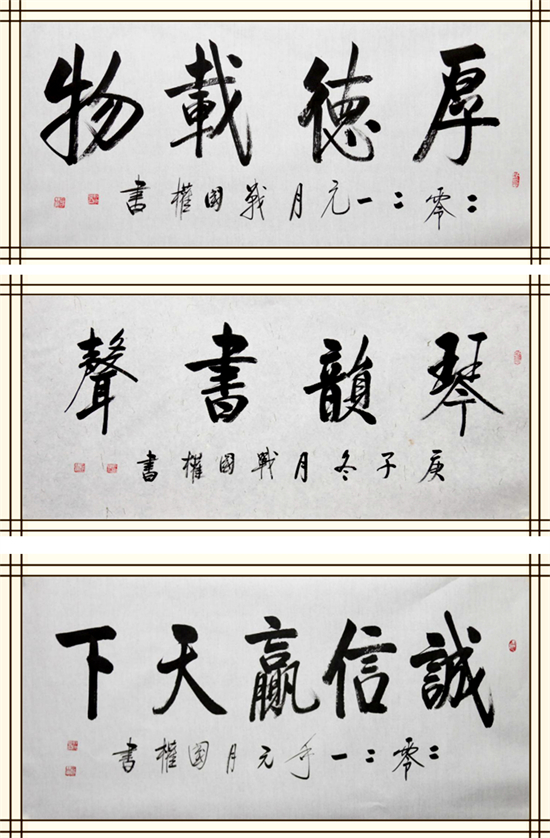 厚德載物
二零二一元月戰國權書
琴韻書聲
庚子冬月戰國權書
誠信贏天下
二零二一年元月國權書